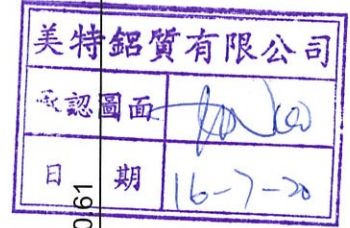 美特鋁質有限公司
承認圖面
日期 16-7-20
0.61